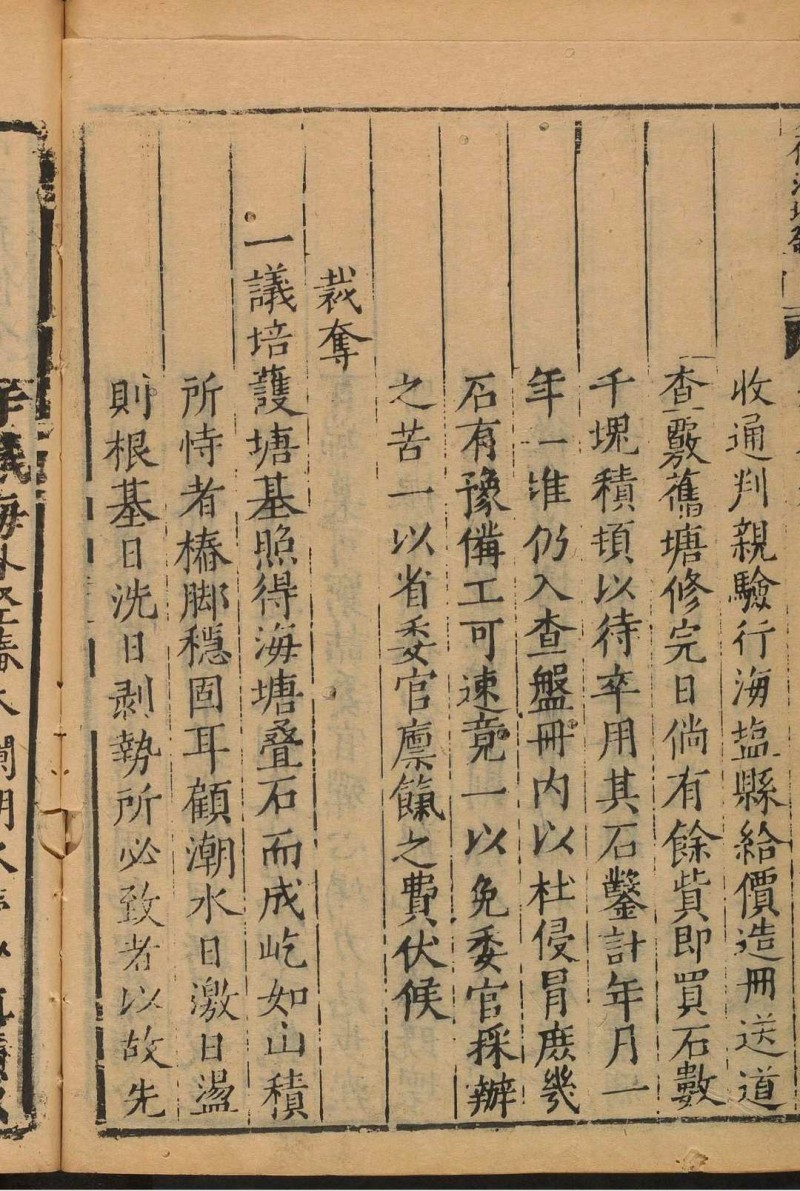 收通判親驗行海塩縣給價造冊送道
查覈舊塘修完日倘有餘貲即買石數
千塊積頓以待卒用其石鑿計年月一
年一堆仍入查盤冊内以杜侵冐庶幾
石有豫備工可速竟一以免委官採辦
之苦一以省委官廪餼之費伏候
裁奪
一議培護塘基照得海塘叠石而成屹如山積
所恃者樁脚穩固耳顧潮水日激日盪
則根基日洗日剥勢所必致者以故先